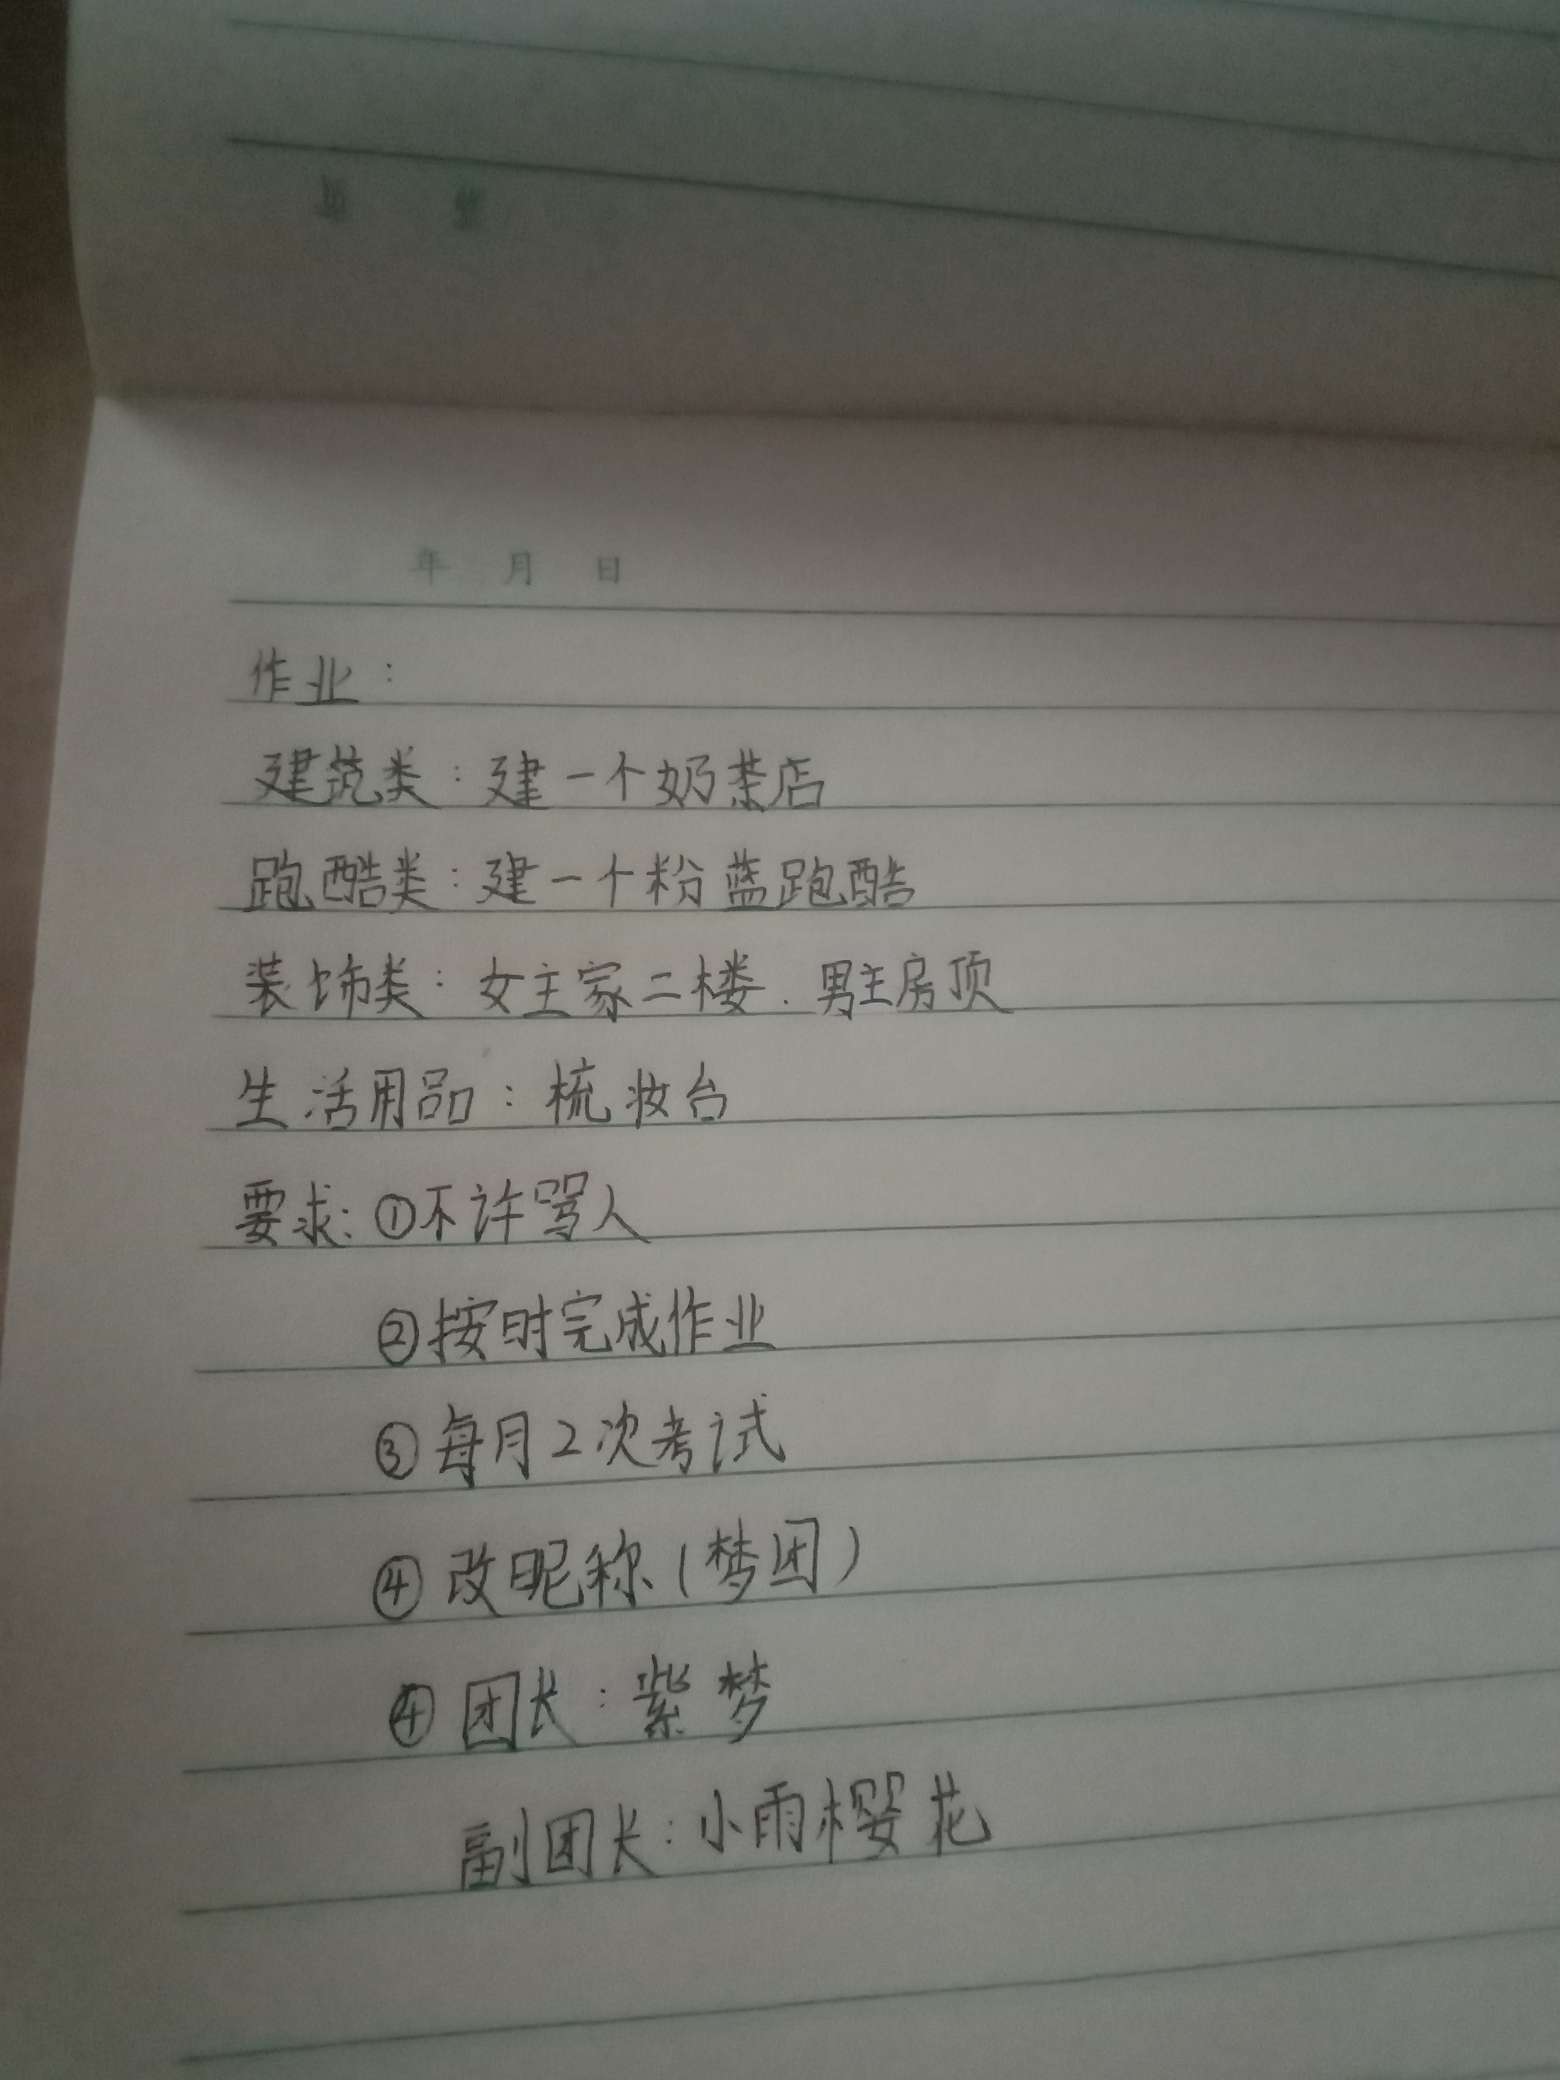 年 月 日
作业:
建筑类:建一个奶茶店
跑酷类:建一个粉蓝跑酷
装饰类:女主家二楼.男主房顶
生活用品:梳妆台
要求:①不许骂人
②按时完成作业
③每月2次考试
④改昵称(梦团)
④团长:紫梦
副团长:小雨樱花